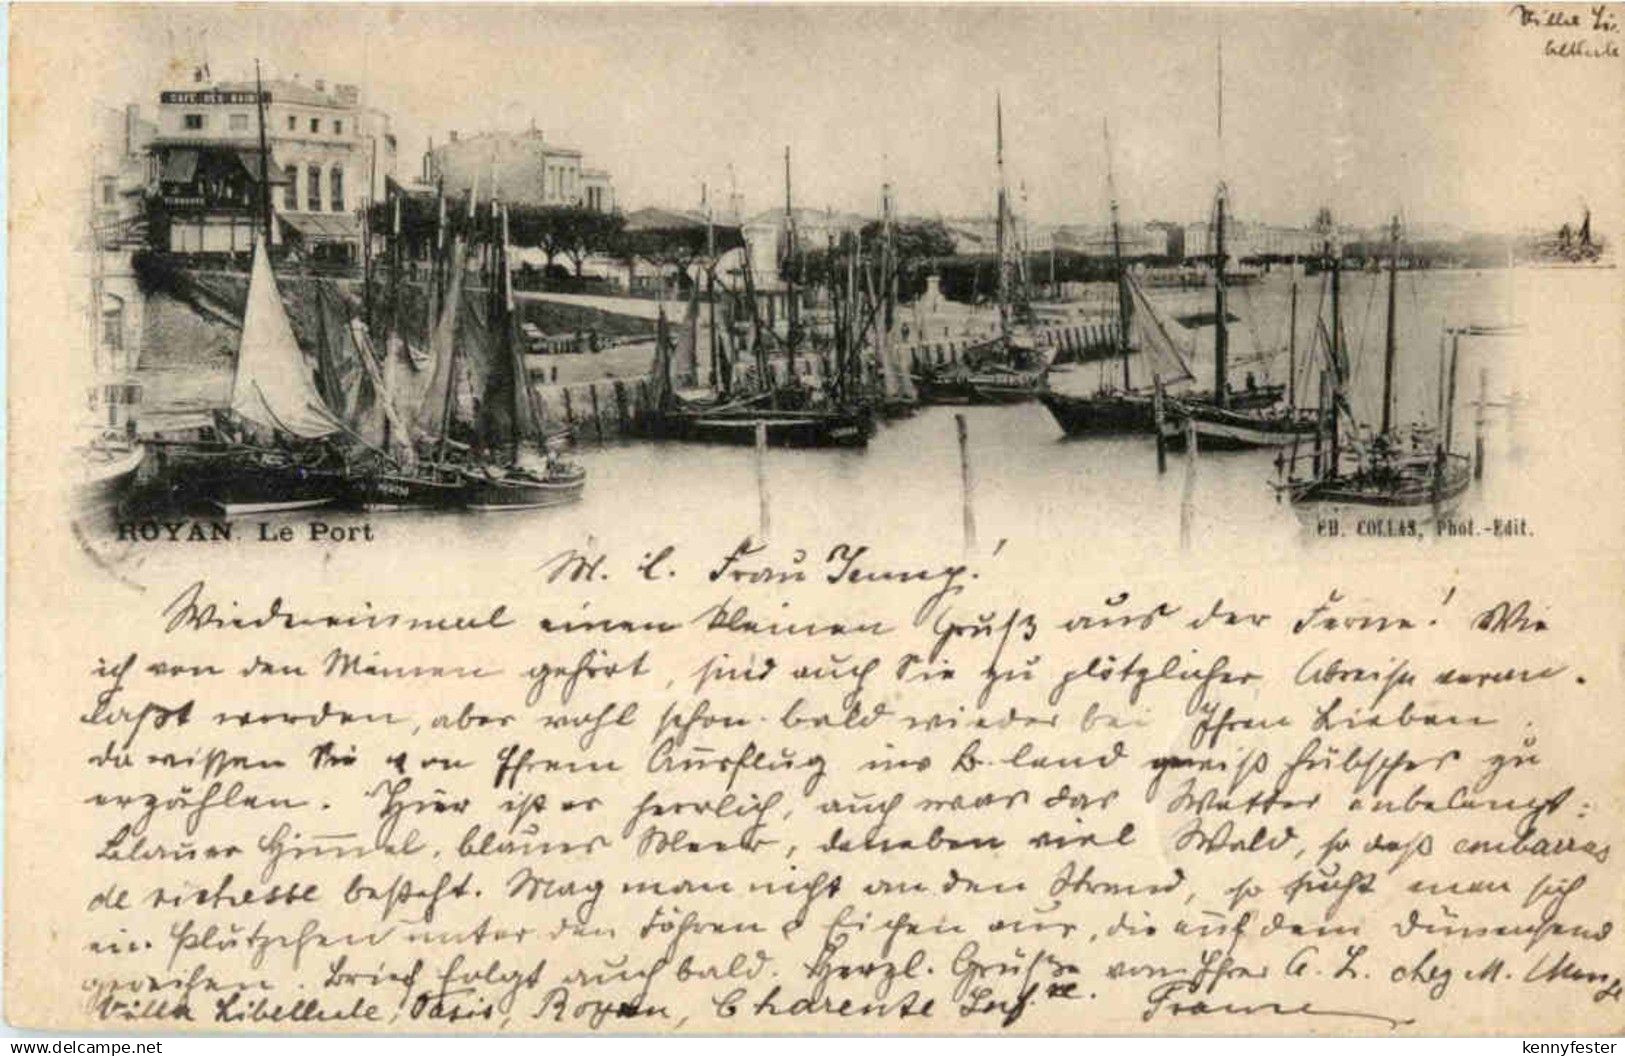 Villa Li-
bellule
CAFÉ DES BAINS
ROYAN. Le Port
CH. COLLAS, Phot.-Edit.
M. l. Frau Jenny!
Wiedereinmal einen kleinen Gruß aus der Ferne! Wie
ich von den Meinen gehört, sind auch Sie zu plötzlicher Abreise veran-
laßt worden, aber wohl schon bald wieder bei Ihren Lieben.
da wissen Sie von Ihrem Ausflug ins B. land gewiß hübsches zu
erzählen. Hier ist es herrlich, auch was das Wetter anbelangt:
blauer Himmel, blaues Meer, daneben viel Wald, so daß embarras
de richesse besteht. Mag man nicht an den Strand, so sucht man sich
ein Plätzchen unter den Föhren & Eichen aus, die auf dem Dünensand
gedeihen. Brief folgt auch bald. Herzl. Grüße von Ihrer A. L. chez M.
Villa Libellule, Oasis, Royan, Charente Inf.re. France
delcampe.net
kennyfester